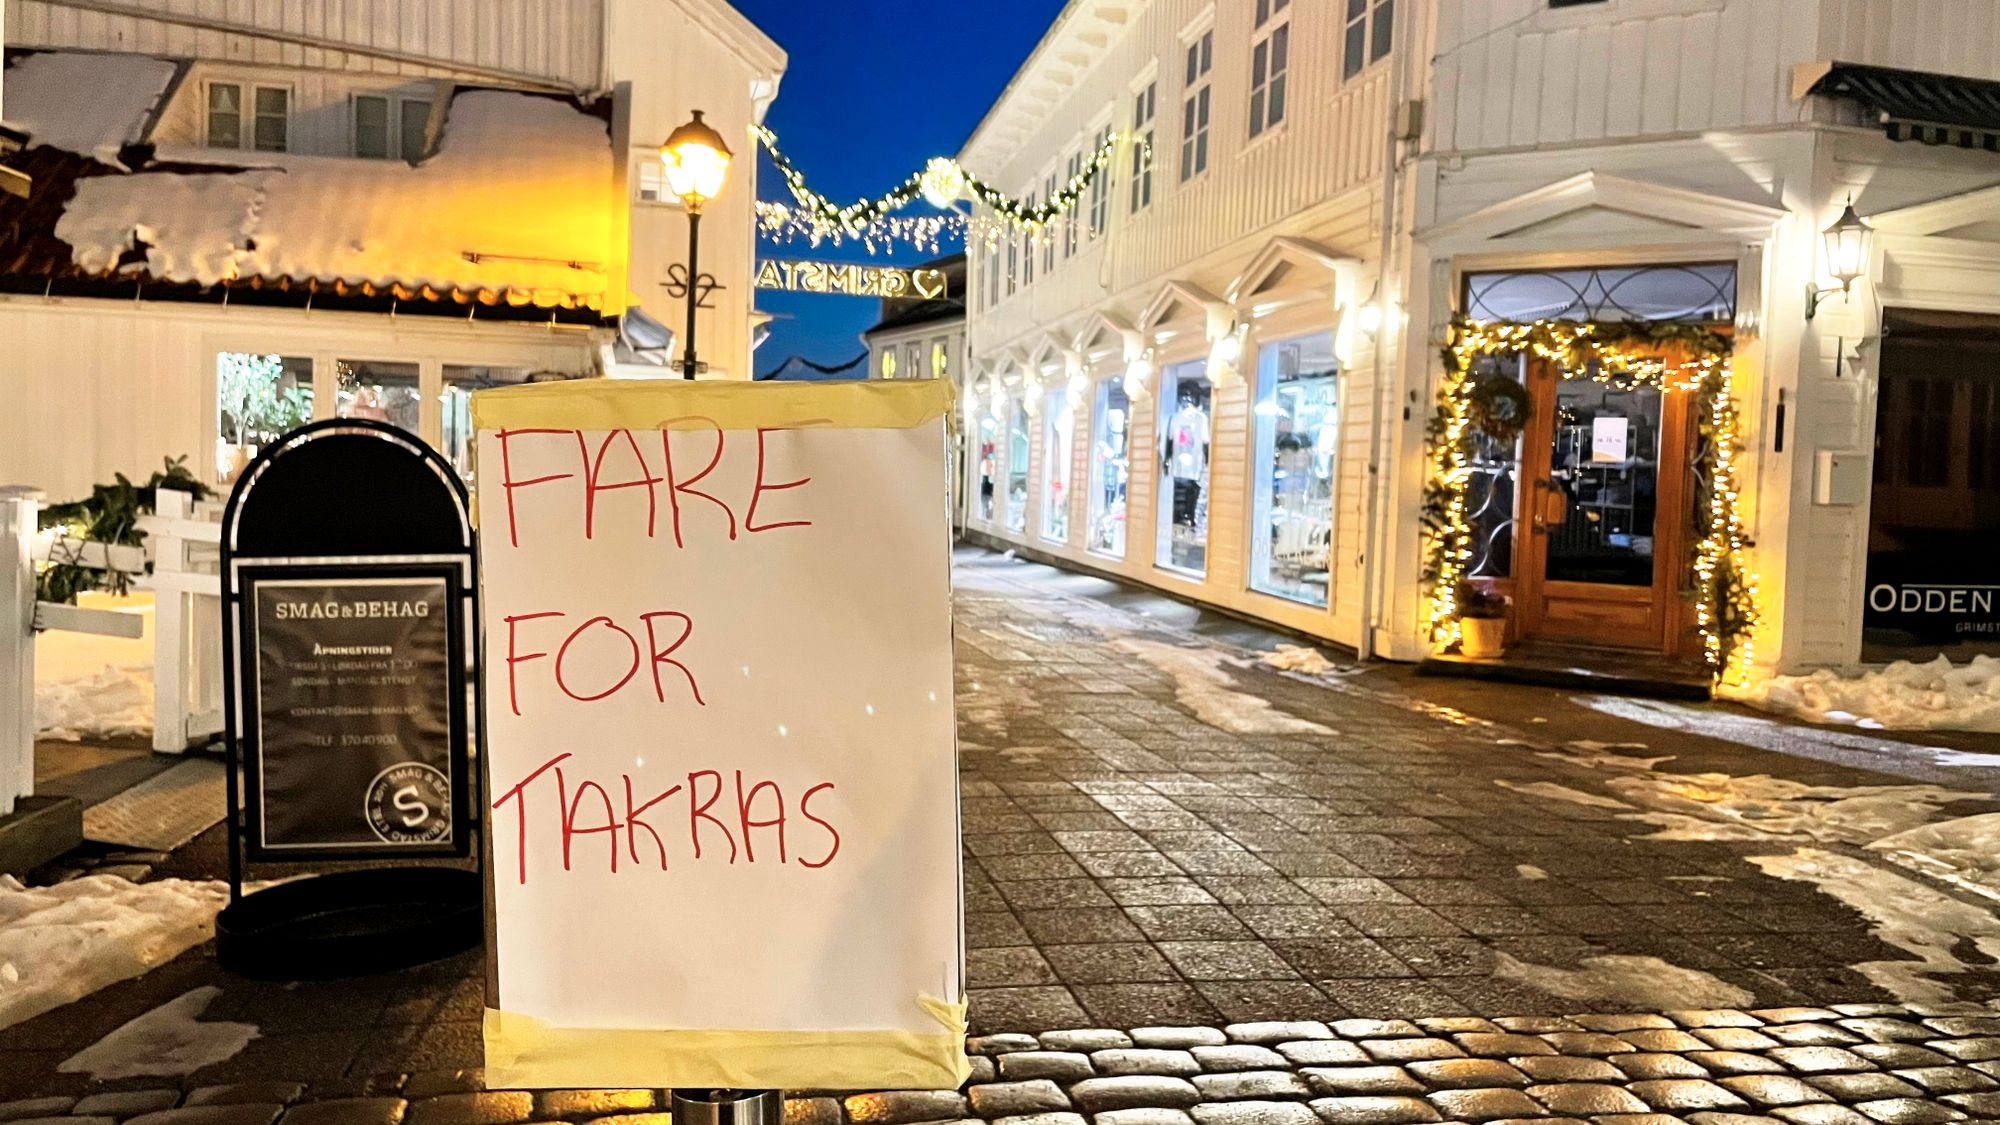 GRIMSTA
FARE
FOR
TAKRAS
SMAG & BEHAG
ÅPNINGSTIDER
SØNDAG - MANDAG STENGT
KONTAKT@SMAG-BEHAG.NO
TLF. 37040900
SMAG & BE
GRIMSTAD
S
ODDEN
GRIMST